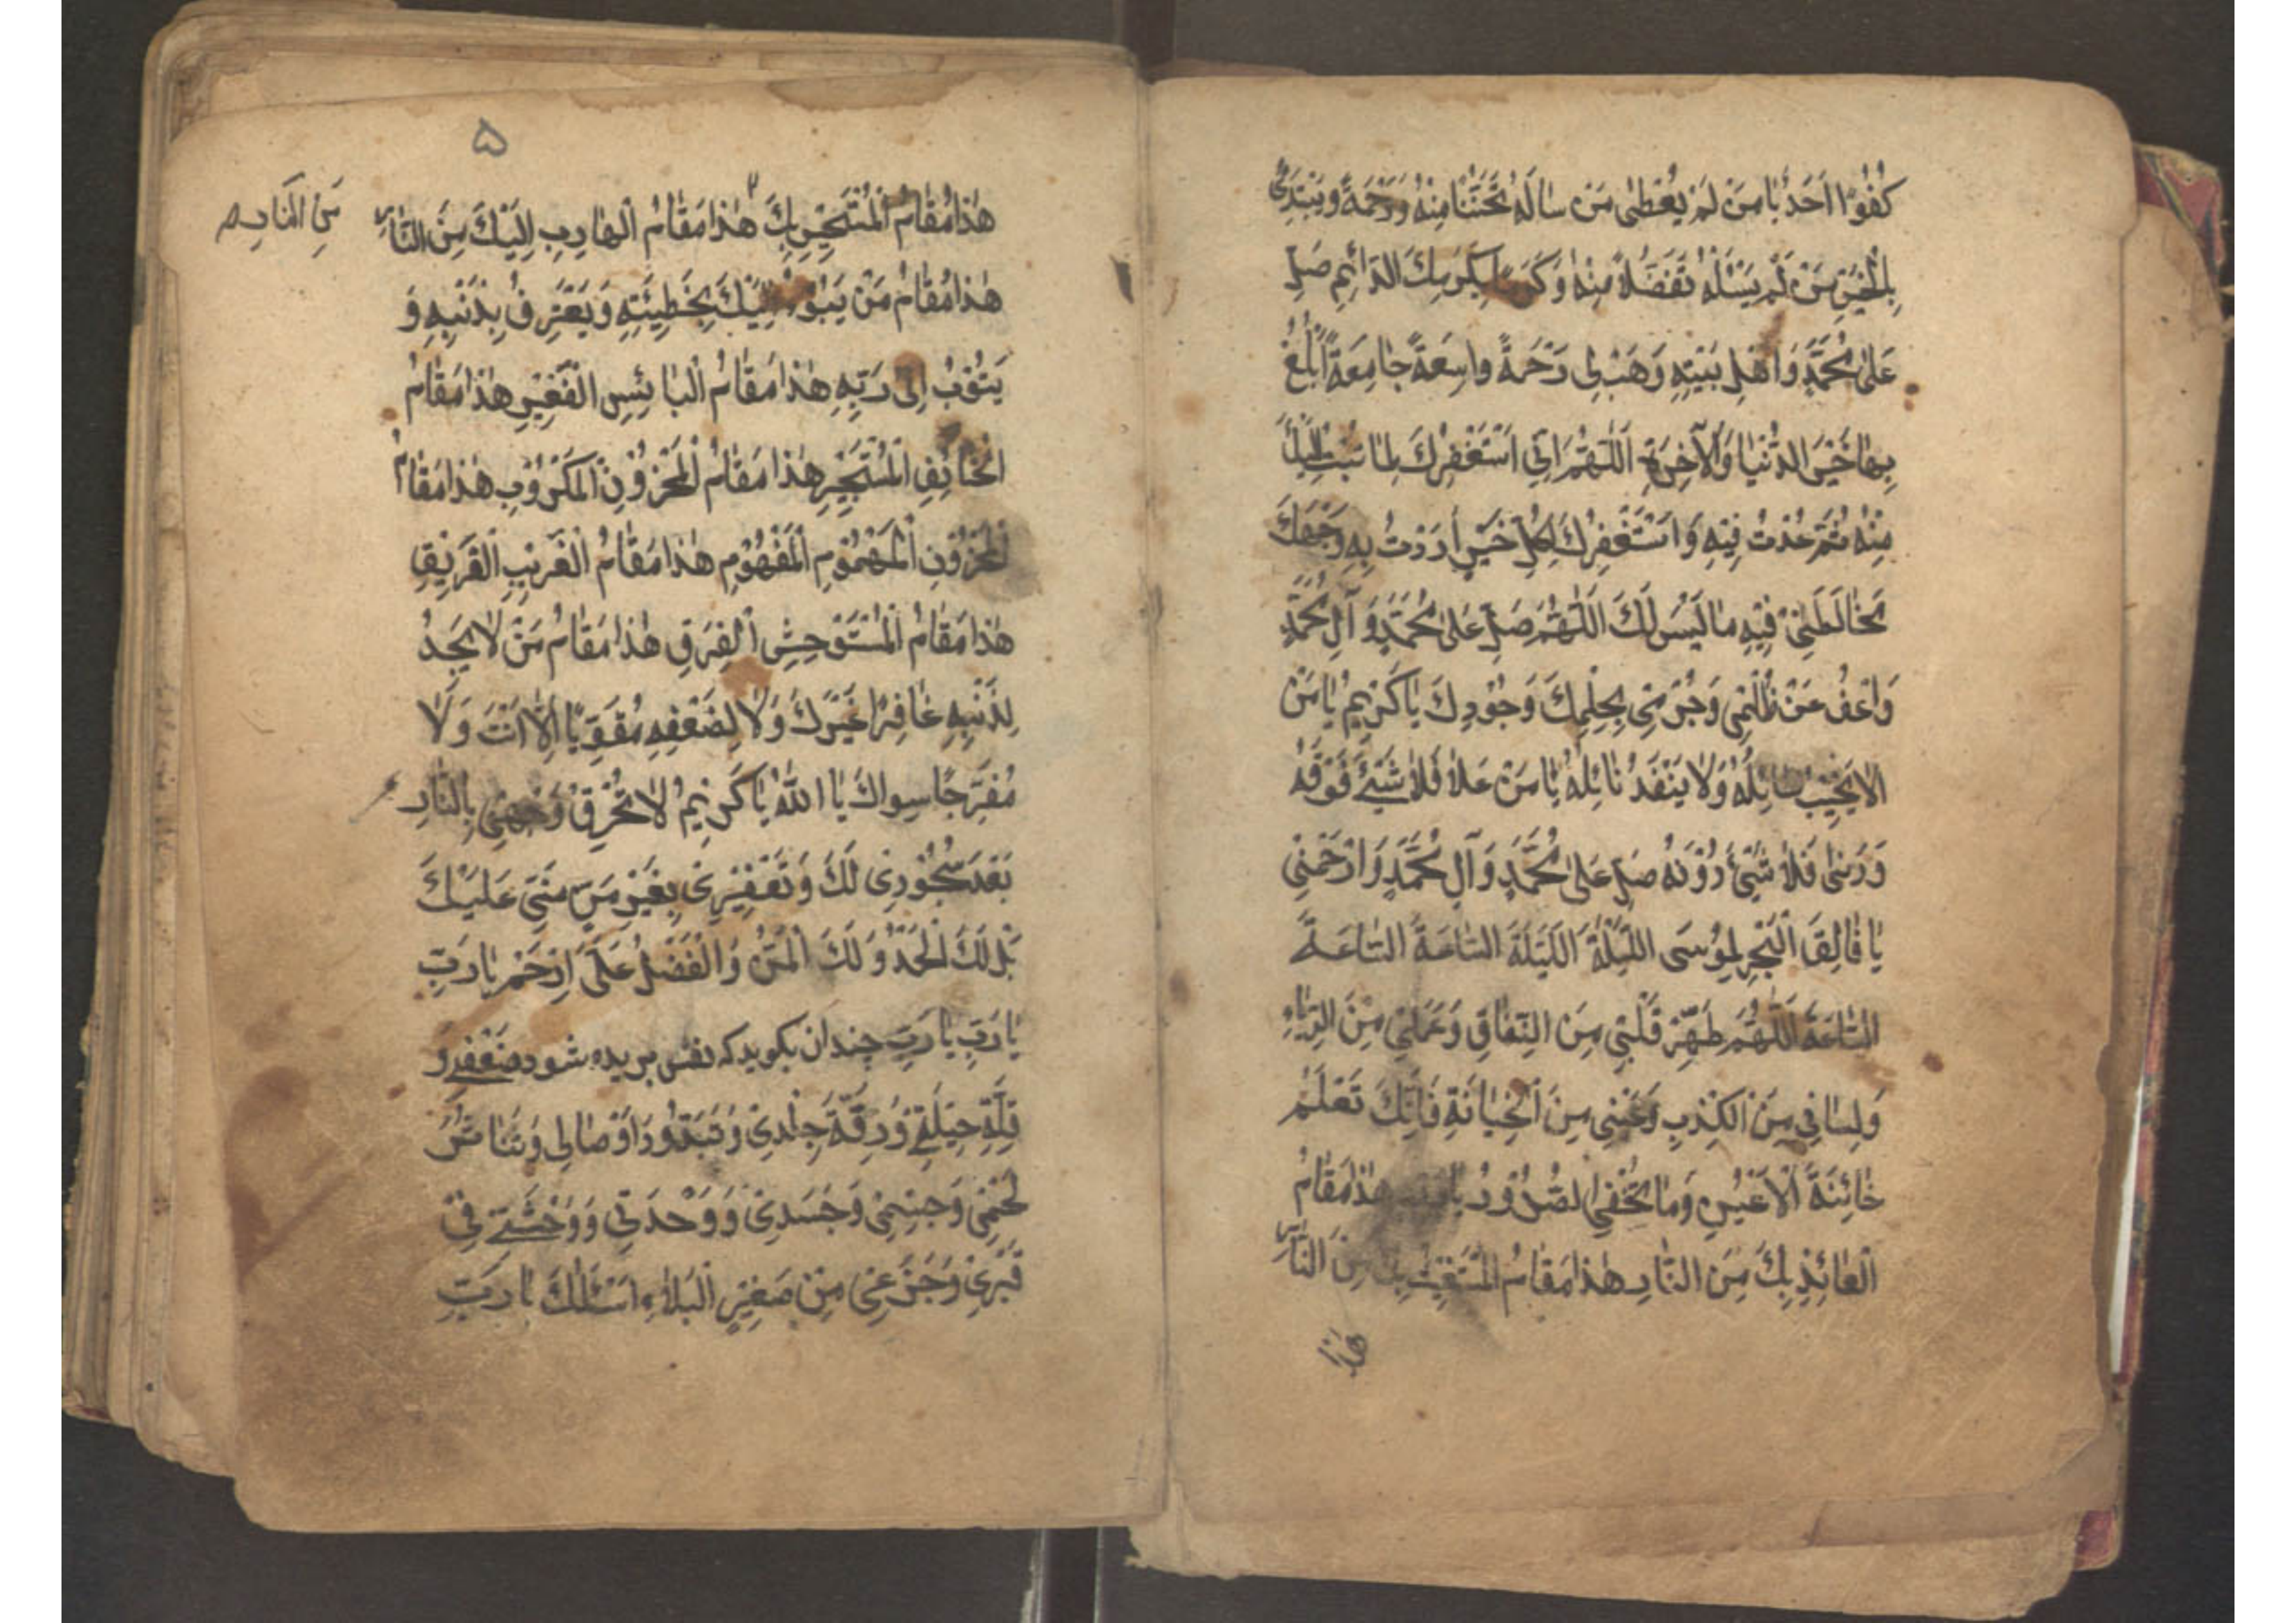 كُفُوًا اَحَدٌ يَا مَنْ لَمْ يُعْطٰى مَنْ سٰالَهُ تَحَنُّنًا مِنْهُ وَرَحْمَةً وَيَبْتَدِئُ
بِالْخَيْرِ مَنْ لَمْ يَسْئَلْهُ تَفَضُّلاً مِنْهُ وَكَرَمًا بِكَرَمِكَ الدّٰائِمِ صَلِّ
عَلىٰ مُحَمَّدٍ وَاَهْلِ بَيْتِهِ وَهَبْ لِى رَحْمَةً وٰاسِعَةً جٰامِعَةً اَبْلُغُ
بِهٰا خَيْرَ الدُّنْيٰا وَالْآخِرَةِ اَللّٰهُمَّ اِنّى اَسْتَغْفِرُكَ لِمٰا تُبْتُ اِلَيْكَ
مِنْهُ ثُمَّ عُدْتُ فِيْهِ وَاَسْتَغْفِرُكَ لِكُلِّ خَيْرٍ اَرَدْتُ بِهِ وَجْهَكَ
فَخٰالَطَنِىْ فِيْهِ مٰا لَيْسَ لَكَ اَللّٰهُمَّ صَلِّ عَلىٰ مُحَمَّدٍ وَآلِ مُحَمَّدٍ
وَاعْفُ عَنْ ظُلْمِى وَجُرْمِى بِحِلْمِكَ وَجُوْدِكَ يٰا كَرِيْمُ يٰا مَنْ
لاٰ يَخِيْبُ سٰائِلُهُ وَلاٰ يَنْفَدُ نٰائِلُهُ يٰا مَنْ عَلاٰ فَلاٰ شَيْئَ فَوْقَهُ
وَدَنىٰ فَلاٰ شَيْئَ دُوْنَهُ صَلِّ عَلىٰ مُحَمَّدٍ وَآلِ مُحَمَّدٍ وَارْحَمْنِى
يٰا فٰالِقَ الْبَحْرِ لِمُوْسَى اللَّيْلَةَ اَللَّيْلَةَ السّٰاعَةَ السّٰاعَةَ
السّٰاعَةَ اَللّٰهُمَّ طَهِّرْ قَلْبِى مِنَ النِّفٰاقِ وَعَمَلِى مِنَ الرِّيٰاءِ
وَلِسٰانِى مِنَ الْكِذْبِ وَعَيْنِى مِنَ الْخِيٰانَةِ فَاِنَّكَ تَعْلَمُ
خٰائِنَةَ الْاَعْيُنِ وَمٰا تُخْفِى الصُّدُوْرُ يٰا رَبِّ هٰذٰا مَقٰامُ
الْعٰائِذِ بِكَ مِنَ النّٰارِ هٰذٰا مَقٰامُ الْمُسْتَغِيْثِ بِكَ مِنَ النّٰارِ
هٰذٰا
۵
هٰذٰا مَقٰامُ الْمُسْتَجِيْرِ بِكَ هٰذٰا مَقٰامُ الْهٰارِبِ اِلَيْكَ مِنَ النّٰارِ
مِنَ النّار
هٰذٰا مَقٰامُ مَنْ يَبُوْءُ اِلَيْكَ بِخَطِيْئَتِهِ وَيَعْتَرِفُ بِذَنْبِهِ وَ
يَتُوْبُ اِلىٰ رَبِّهِ هٰذٰا مَقٰامُ الْبٰائِسِ الْفَقِيْرِ هٰذٰا مَقٰامُ
الْخٰائِفِ الْمُسْتَجِيْرِ هٰذٰا مَقٰامُ الْمَحْزُوْنِ الْمَكْرُوْبِ هٰذٰا مَقٰامُ
الْمَحْزُوْنِ الْمَهْمُوْمِ الْمَغْمُوْمِ هٰذٰا مَقٰامُ الْغَرِيْبِ الْغَرِيْقِ
هٰذٰا مَقٰامُ الْمُسْتَوْحِشِ الْفَرِقِ هٰذٰا مَقٰامُ مَنْ لاٰ يَجِدُ
لِذَنْبِهِ غٰافِرًا غَيْرَكَ وَلاٰ لِضَعْفِهِ مُقَوِّيًا اِلاّٰ اَنْتَ وَلاٰ
مُفَرِّجًا سِوٰاكَ يٰا اَللّٰهُ يٰا كَرِيْمُ لاٰ تُحْرِقْ وَجْهِى بِالنّٰارِ
بَعْدَ سُجُوْدِى لَكَ وَتَعْفِيْرِى بِغَيْرِ مَنٍّ مِنِّى عَلَيْكَ
بَلْ لَكَ الْحَمْدُ وَلَكَ الْمَنُّ وَالْفَضْلُ عَلَىَّ اِرْحَمْ يٰا رَبِّ
يٰا رَبِّ يٰا رَبِّ چندان بكويد كه نفس بريده شود ضَعْفِى وَ
قِلَّةَ حِيْلَتِى وَرِقَّةَ جِلْدِىْ وَتَبَدُّدَ اَوْصٰالِى وَتَنٰاثُرَ
لَحْمِى وَجِسْمِى وَجَسَدِىْ وَوَحْدَتِى وَوَحْشَتِى فِىْ
قَبْرِىْ وَجَزَعِى مِنْ صَغِيْرِ الْبَلاٰءِ اَسْئَلُكَ يٰا رَبِّ